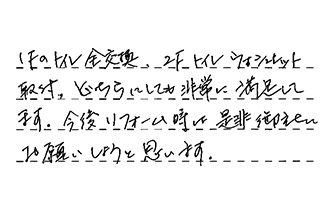 1Fのトイレ全交換、2Fトイレウォシュレット
取付、どちらにしても非常に満足して
ます。今後リフォーム時は是非御社に
お願いしようと思います。